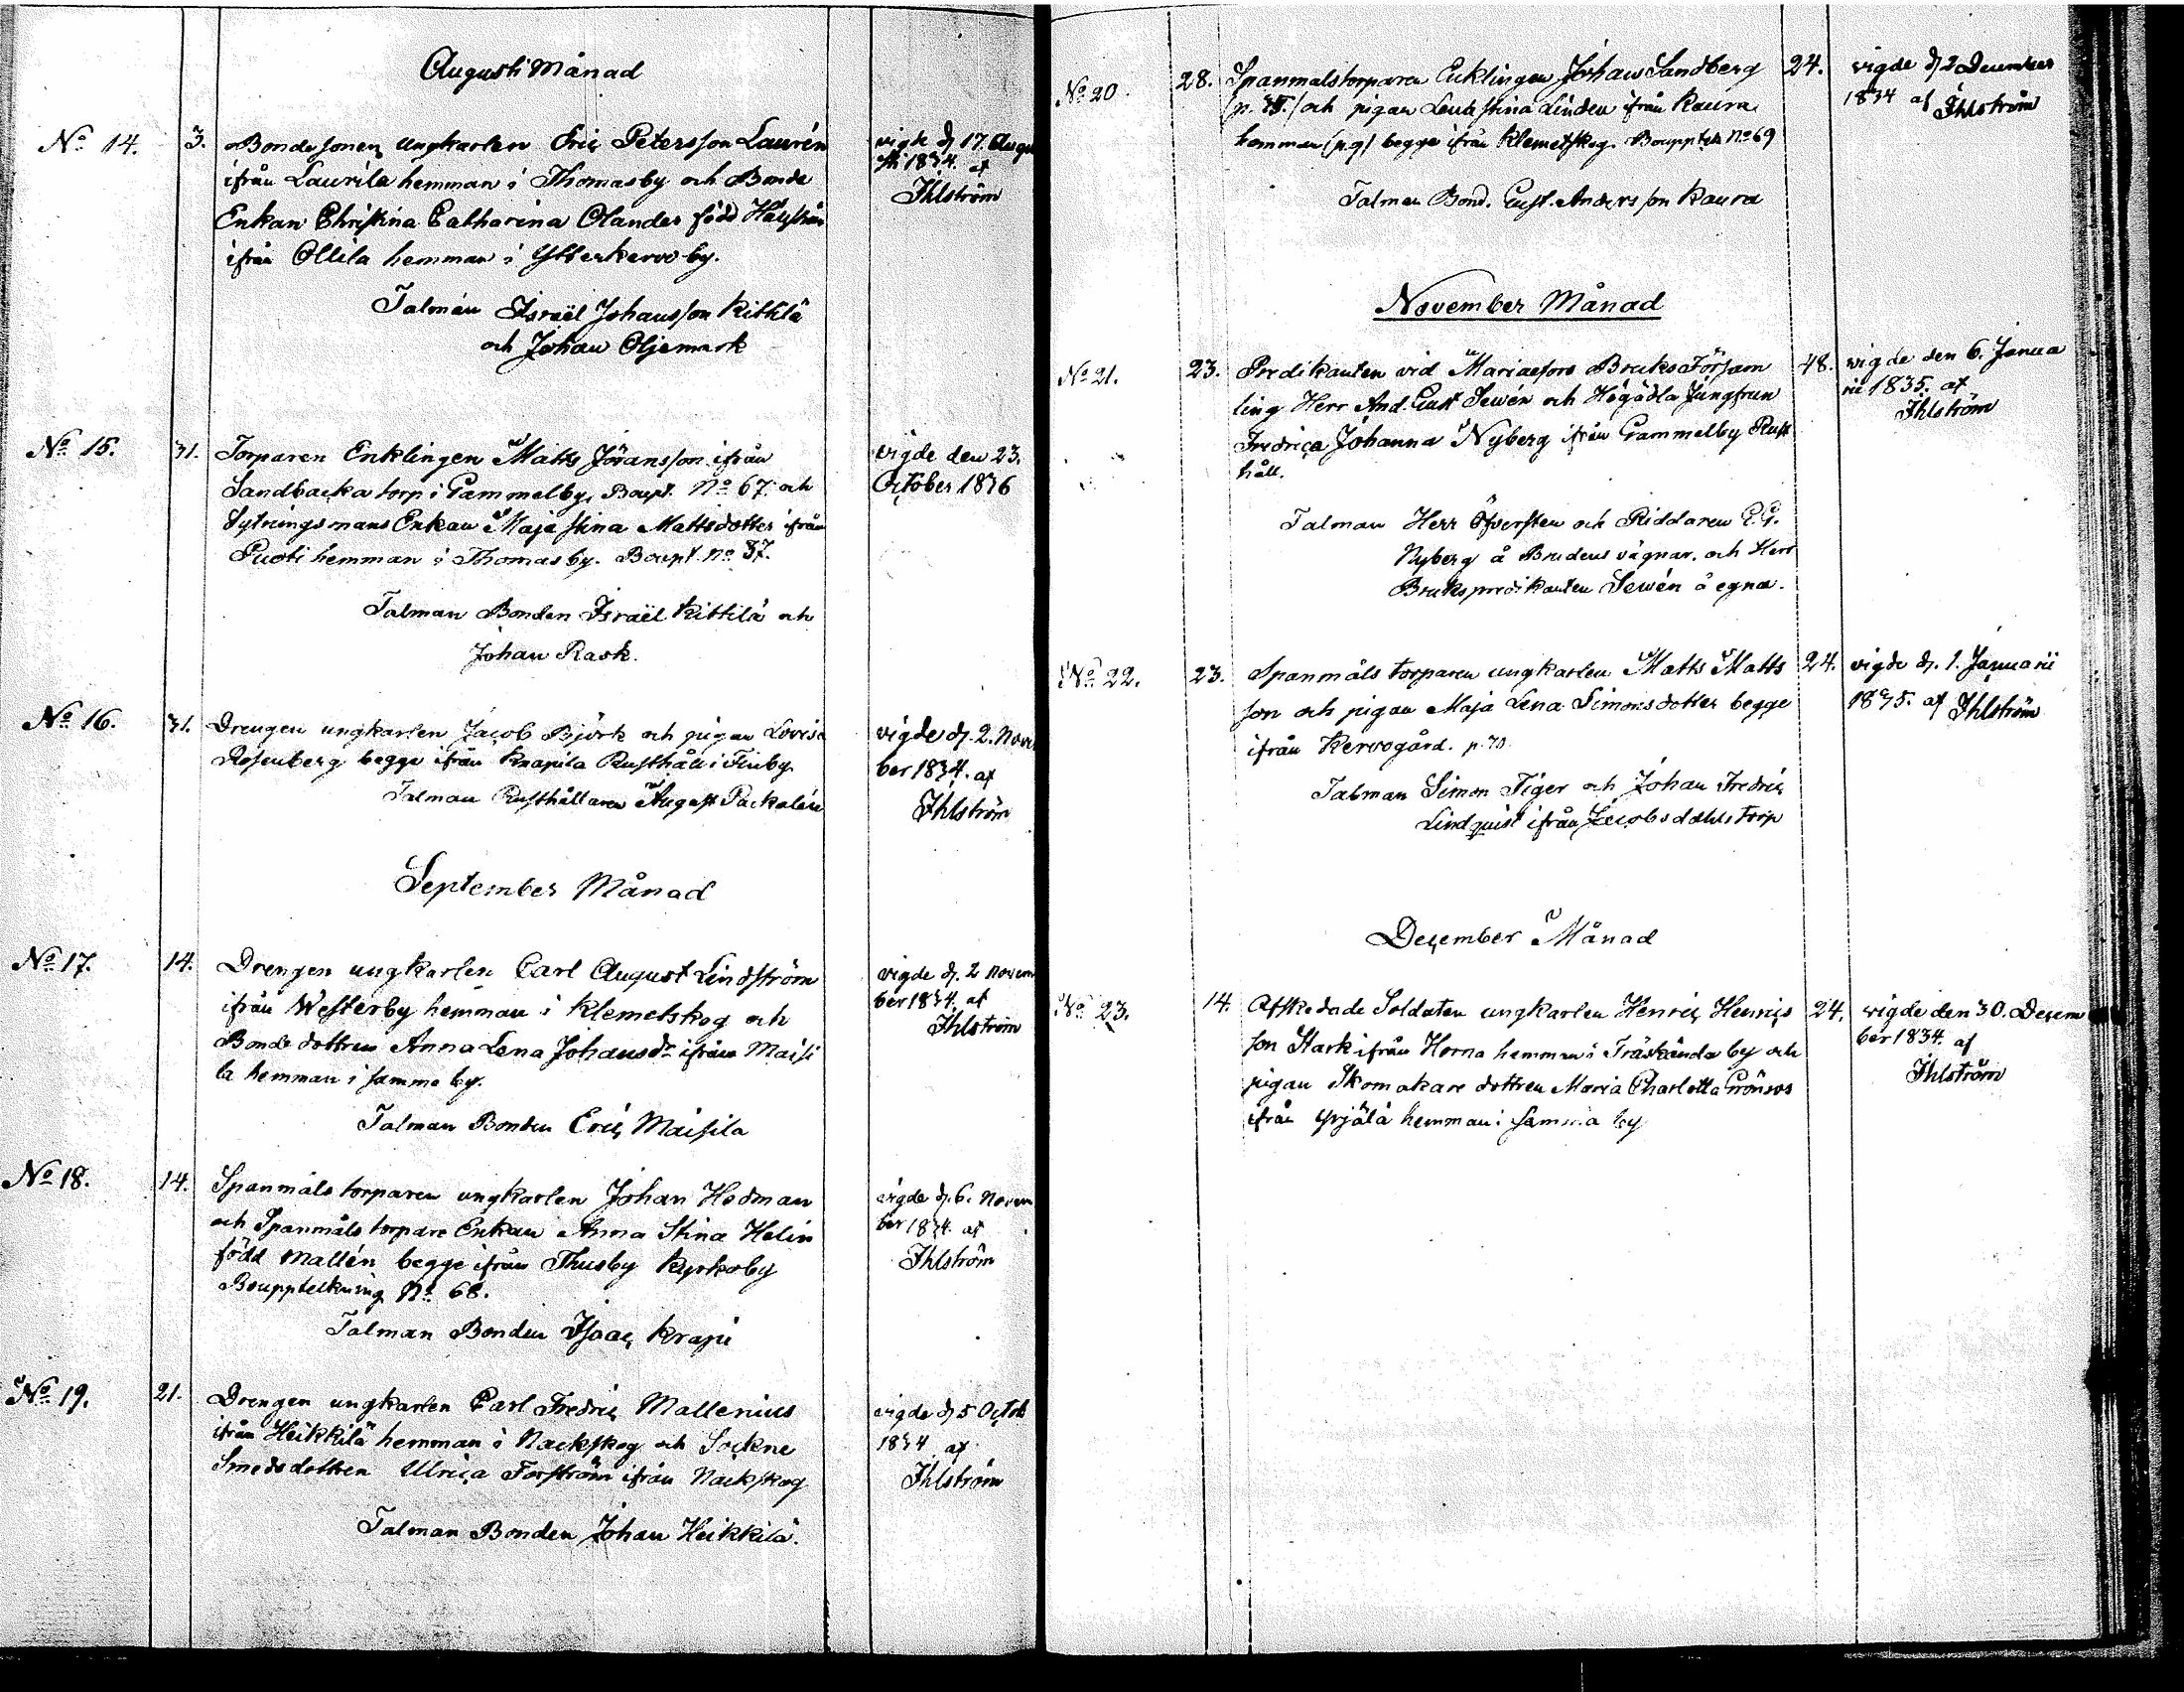 Augusti Månad
No 14. 3. Bondesonen ungkarlen Eric Petersson Laurén
ifrån Laurila hemman i Thomasby och Bonde
Enkan Christina Catharina Olander född
ifrån Ollila hemman i Ytterkervo by.
Talmän Israël Johansson Kittilä
och Johan Oljemark
vigde d. 17. Augu
sti 1834. af
Ihlström
No 15. 31. Torparen Enklingen Matts Jöransson ifrån
Sandbacka torp i Gammelby, Boupt. No 67. och
Sytningsmans Enkan Maja Stina Mattsdotter ifrån
Puoti hemman i Thomasby. Boupt. no 37.
Talman Bonden Israël Kittilä och
Johan Rask.
vigde den 23.
October 1836
No 16. 31. Drengen ungkarlen Jacob Björk och pigan Lovisa
Rosenberg begge ifrån Knapila Rusthåll i Finby
Talman Rusthållaren August Packalén
vigde d. 2. Nove
ber 1834. af
Ihlström
September Månad
No 17. 14. Drengen ungkarlen Carl August Lindström
ifrån Westerby hemman i Klemetskog och
Bonde dottren Anna Lena Johansdr ifrån Maisi
la hemman i samma by.
Talman Bonden Eric Maisila
vigde d. 2 Novem
ber 1834. af
Ihlström
No 18. 14. Spanmåls torparen ungkarlen Johan Hedman
och Spanmåls torpare Enkan Anna Stina Helin
född Mallén begge ifrån Thusby Kyrkoby
Bouppteckning No 68.
Talman Bonden Isaac Krapi
vigde d. 6. Novem
ber 1834. af
Ihlström
No 19. 21. Drengen ungkarlen Carl Fredric Mallenius
ifrån Heikkilä hemman i Nackskog och Sockne
Smedsdottren Ulrica Forström ifrån Nackskog
Talman Bonden Johan Heikkilä.
vigde d. 5 Octob
1834 af
Ihlström
No 20. 28. Spanmålstorparen Enklingen Johan Sandberg 24.
och pigan Lena Stina Linden ifrån Kaura
hemman (p.9) begge ifrån Klemetskog. Boupptekn No 69
Talman Bond. Gust. Andersson Kaura
vigde d. 2 December
1834 af Ihlström
November Månad
No 21. 23. Predikanten vid Mariaefors Bruks Försam 48.
ling Herr And. Gust Sewén och Högädla Jungfrun
Fredrica Johanna Nyberg ifrån Gammelby Rust
håll.
Talman Herr Öfversten och Riddaren C. G.
Nyberg å Brudens vägnar. och Herr
Brukspredikanten Sewén å egna.
vigde den 6. Janua
rii 1835. af
Ihlström
No 22. 23. Spanmåls torparen ungkarlen Matts Matts 24.
son och pigan Maja Lena Simonsdotter begge
ifrån Kervogård. p. 70.
Talman Simon Tiger och Johan Fredric
Lindquist ifrån Jacobsdahls torp
vigde d. 1. Januarii
1835. af Ihlström
December Månad
No 23. 14. Afskedade Soldaten ungkarlen Henric Henrics 24.
son Stark ifrån Horna hemman i Träskända by och
pigan Skomakare dottren Maria Charlotta Grönros
ifrån Yrjälä hemman i samma by
vigde den 30. Decem
ber 1834. af
Ihlström